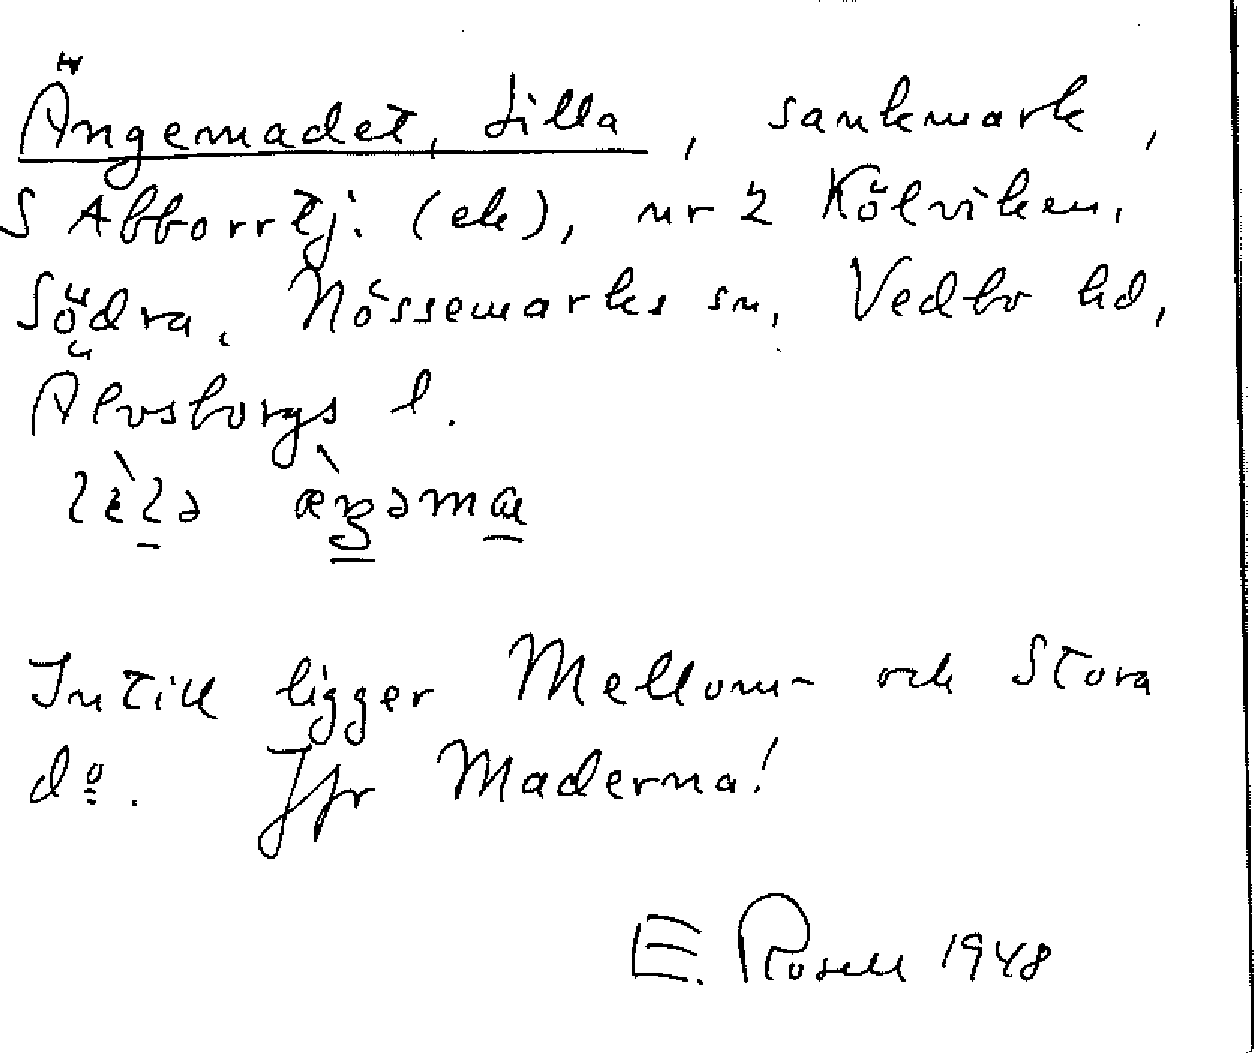 Ängemadet, Lilla, sankmark,
S Abborrtj. (ek), nr 2 Kölviken,
Södra, Nössemarks sn, Vedbo hd,
Älvsborgs l.
Intill ligger Mellom- och Stora
dº. Jfr Maderna!
E. Rosell 1948